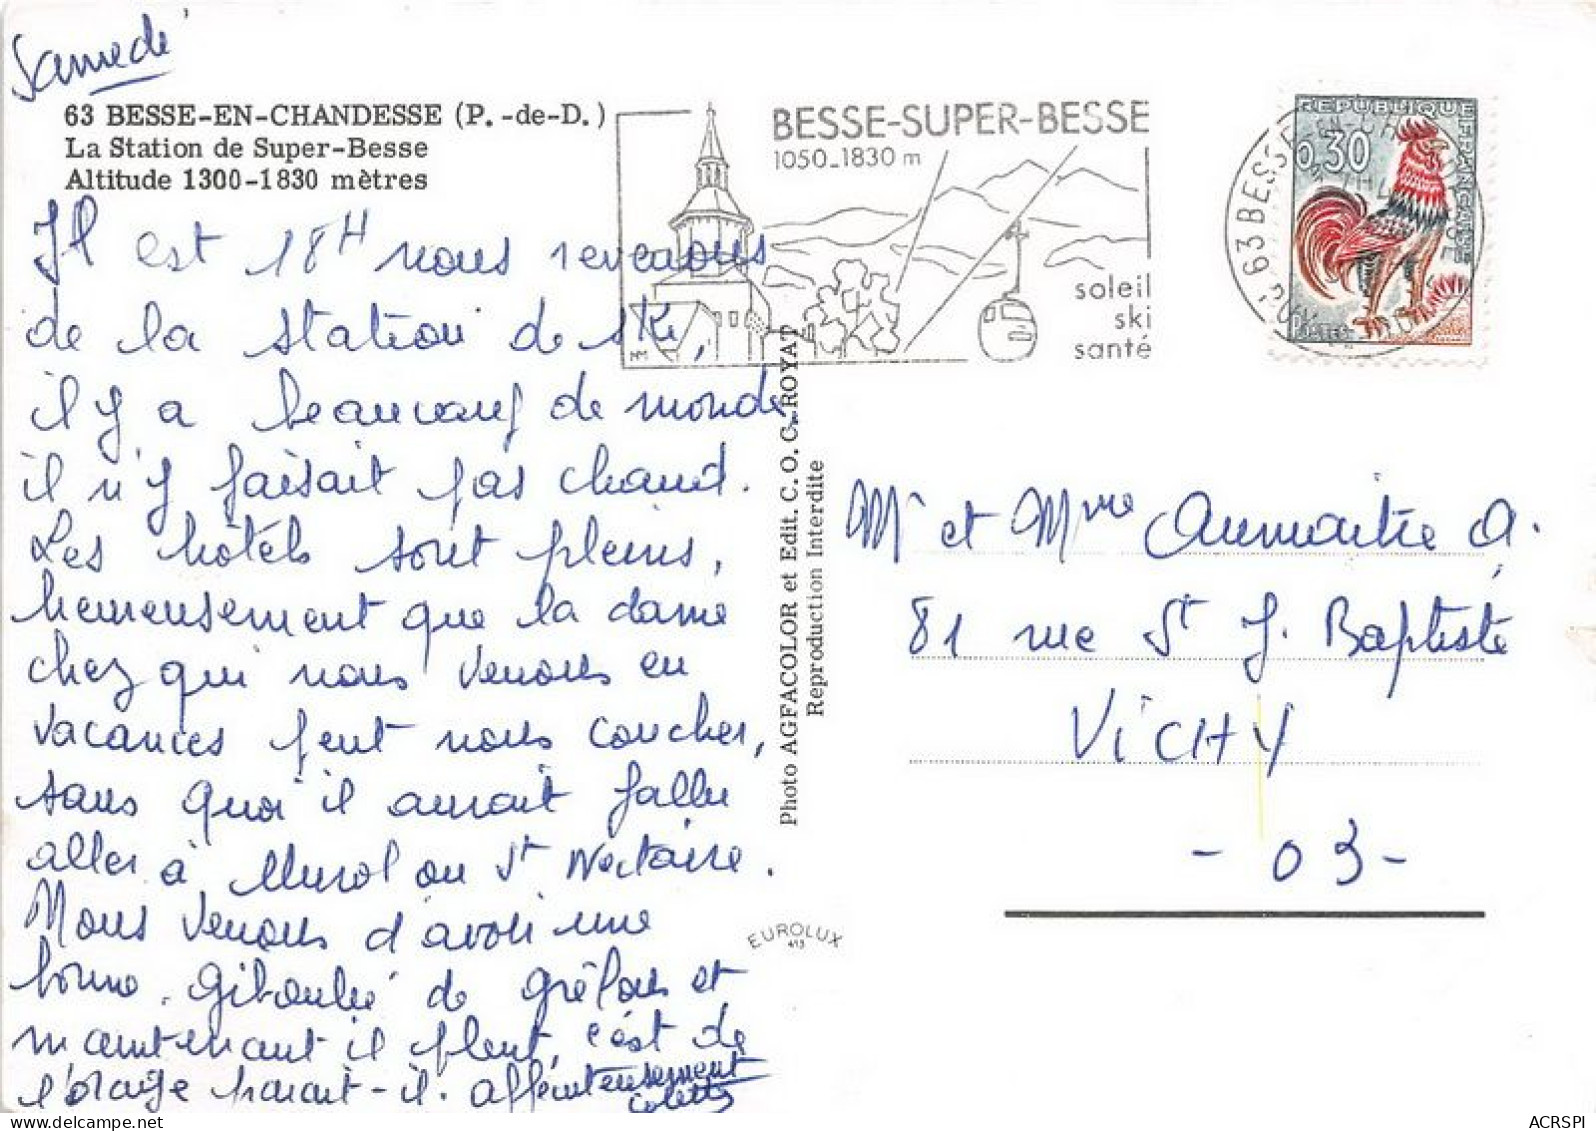 Samedi
63 BESSE-EN-CHANDESSE (P. -de-D. )
La Station de Super-Besse
Altitude 1300-1830 mètres
Il est 18H nous revenons
de la station de ski,
il y a beaucoup de monde
il n'y faisait pas chaud.
Les hôtels sont pleins,
heureusement que la dame
chez qui nous venons en
vacances peut nous coucher,
sans quoi il aurait fallu
aller à Murol ou St Nectaire.
Nous venons d'avoir une
bonne giboulée de grêlons et
maintenant il pleut, c'est de
l'orage parait-il. Affectueusement
Colette
BESSE-SUPER-BESSE
1050-1830 m
soleil
ski
santé
63 BESSE
REPUBLIQUE FRANCAISE
0,30
POSTES
Photo AGFACOLOR et Edit. C. O. C. ROYAT
Reproduction Interdite
EUROLUX
413
Mr et Mme Aumaitre A.
81 rue St J. Baptiste
VICHY
- 03 -
delcampe.net
ACRSPI